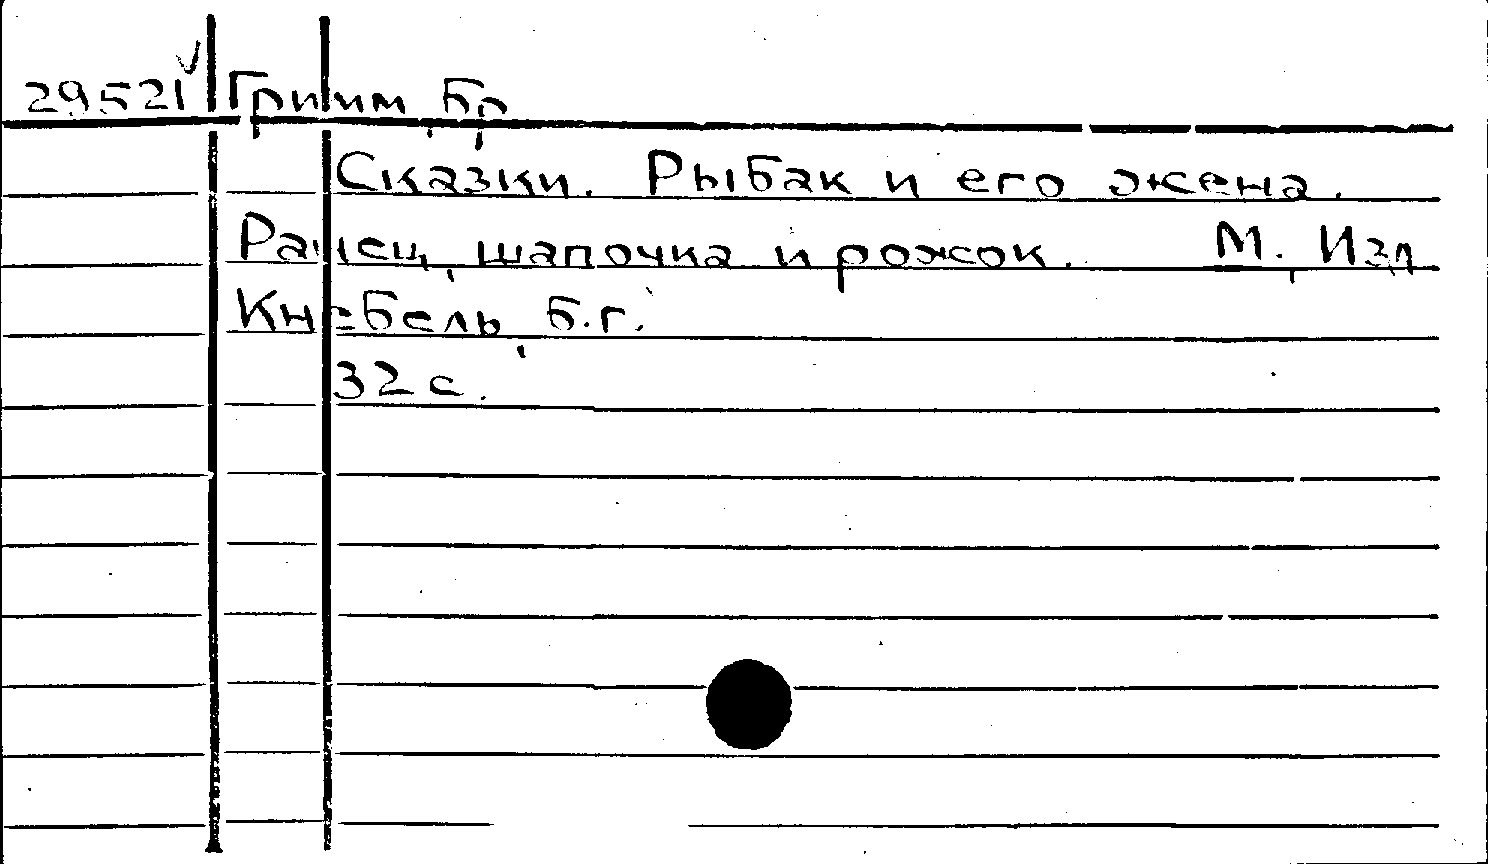 29521 Гримм, Бр.
Сказки. Рыбак и его жена.
Ранец, шапочка и рожок. М. Изд.
Кнебель, б.г.
32 с.